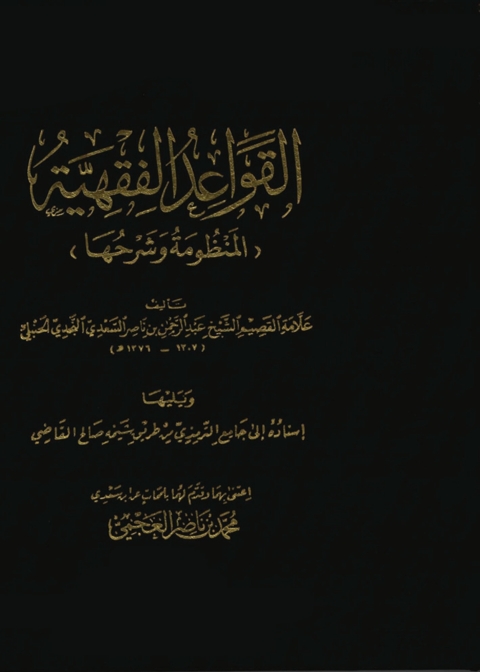 القَوَاعِدُ الفِقْهِيَّةُ
(المَنْظُومَةُ وَشَرْحُهَا)
تأليف
عَلَّامَةِ القَصِيْمِ الشَّيْخِ عَبْدِ الرَّحْمٰنِ بنِ نَاصِرِ السَّعْدِيِّ النَّجْدِيِّ الحَنْبَلِيِّ
(١٣٠٧ - ١٣٧٦ هـ)
وَيَلِيْهَا
إسنادُهُ إلى جَامِعِ التِّرمِذِيِّ مِنْ طَرِيقِ شَيْخِهِ صَالحِ القَاضِي
اِعْتَنَى بِهِمَا وَقَدَّمَ لَهُمَا بِلَمَحَاتٍ عَنِ ابنِ سَعْدِي
مُحَمَّد بنُ نَاصِر العَجْمِيُّ